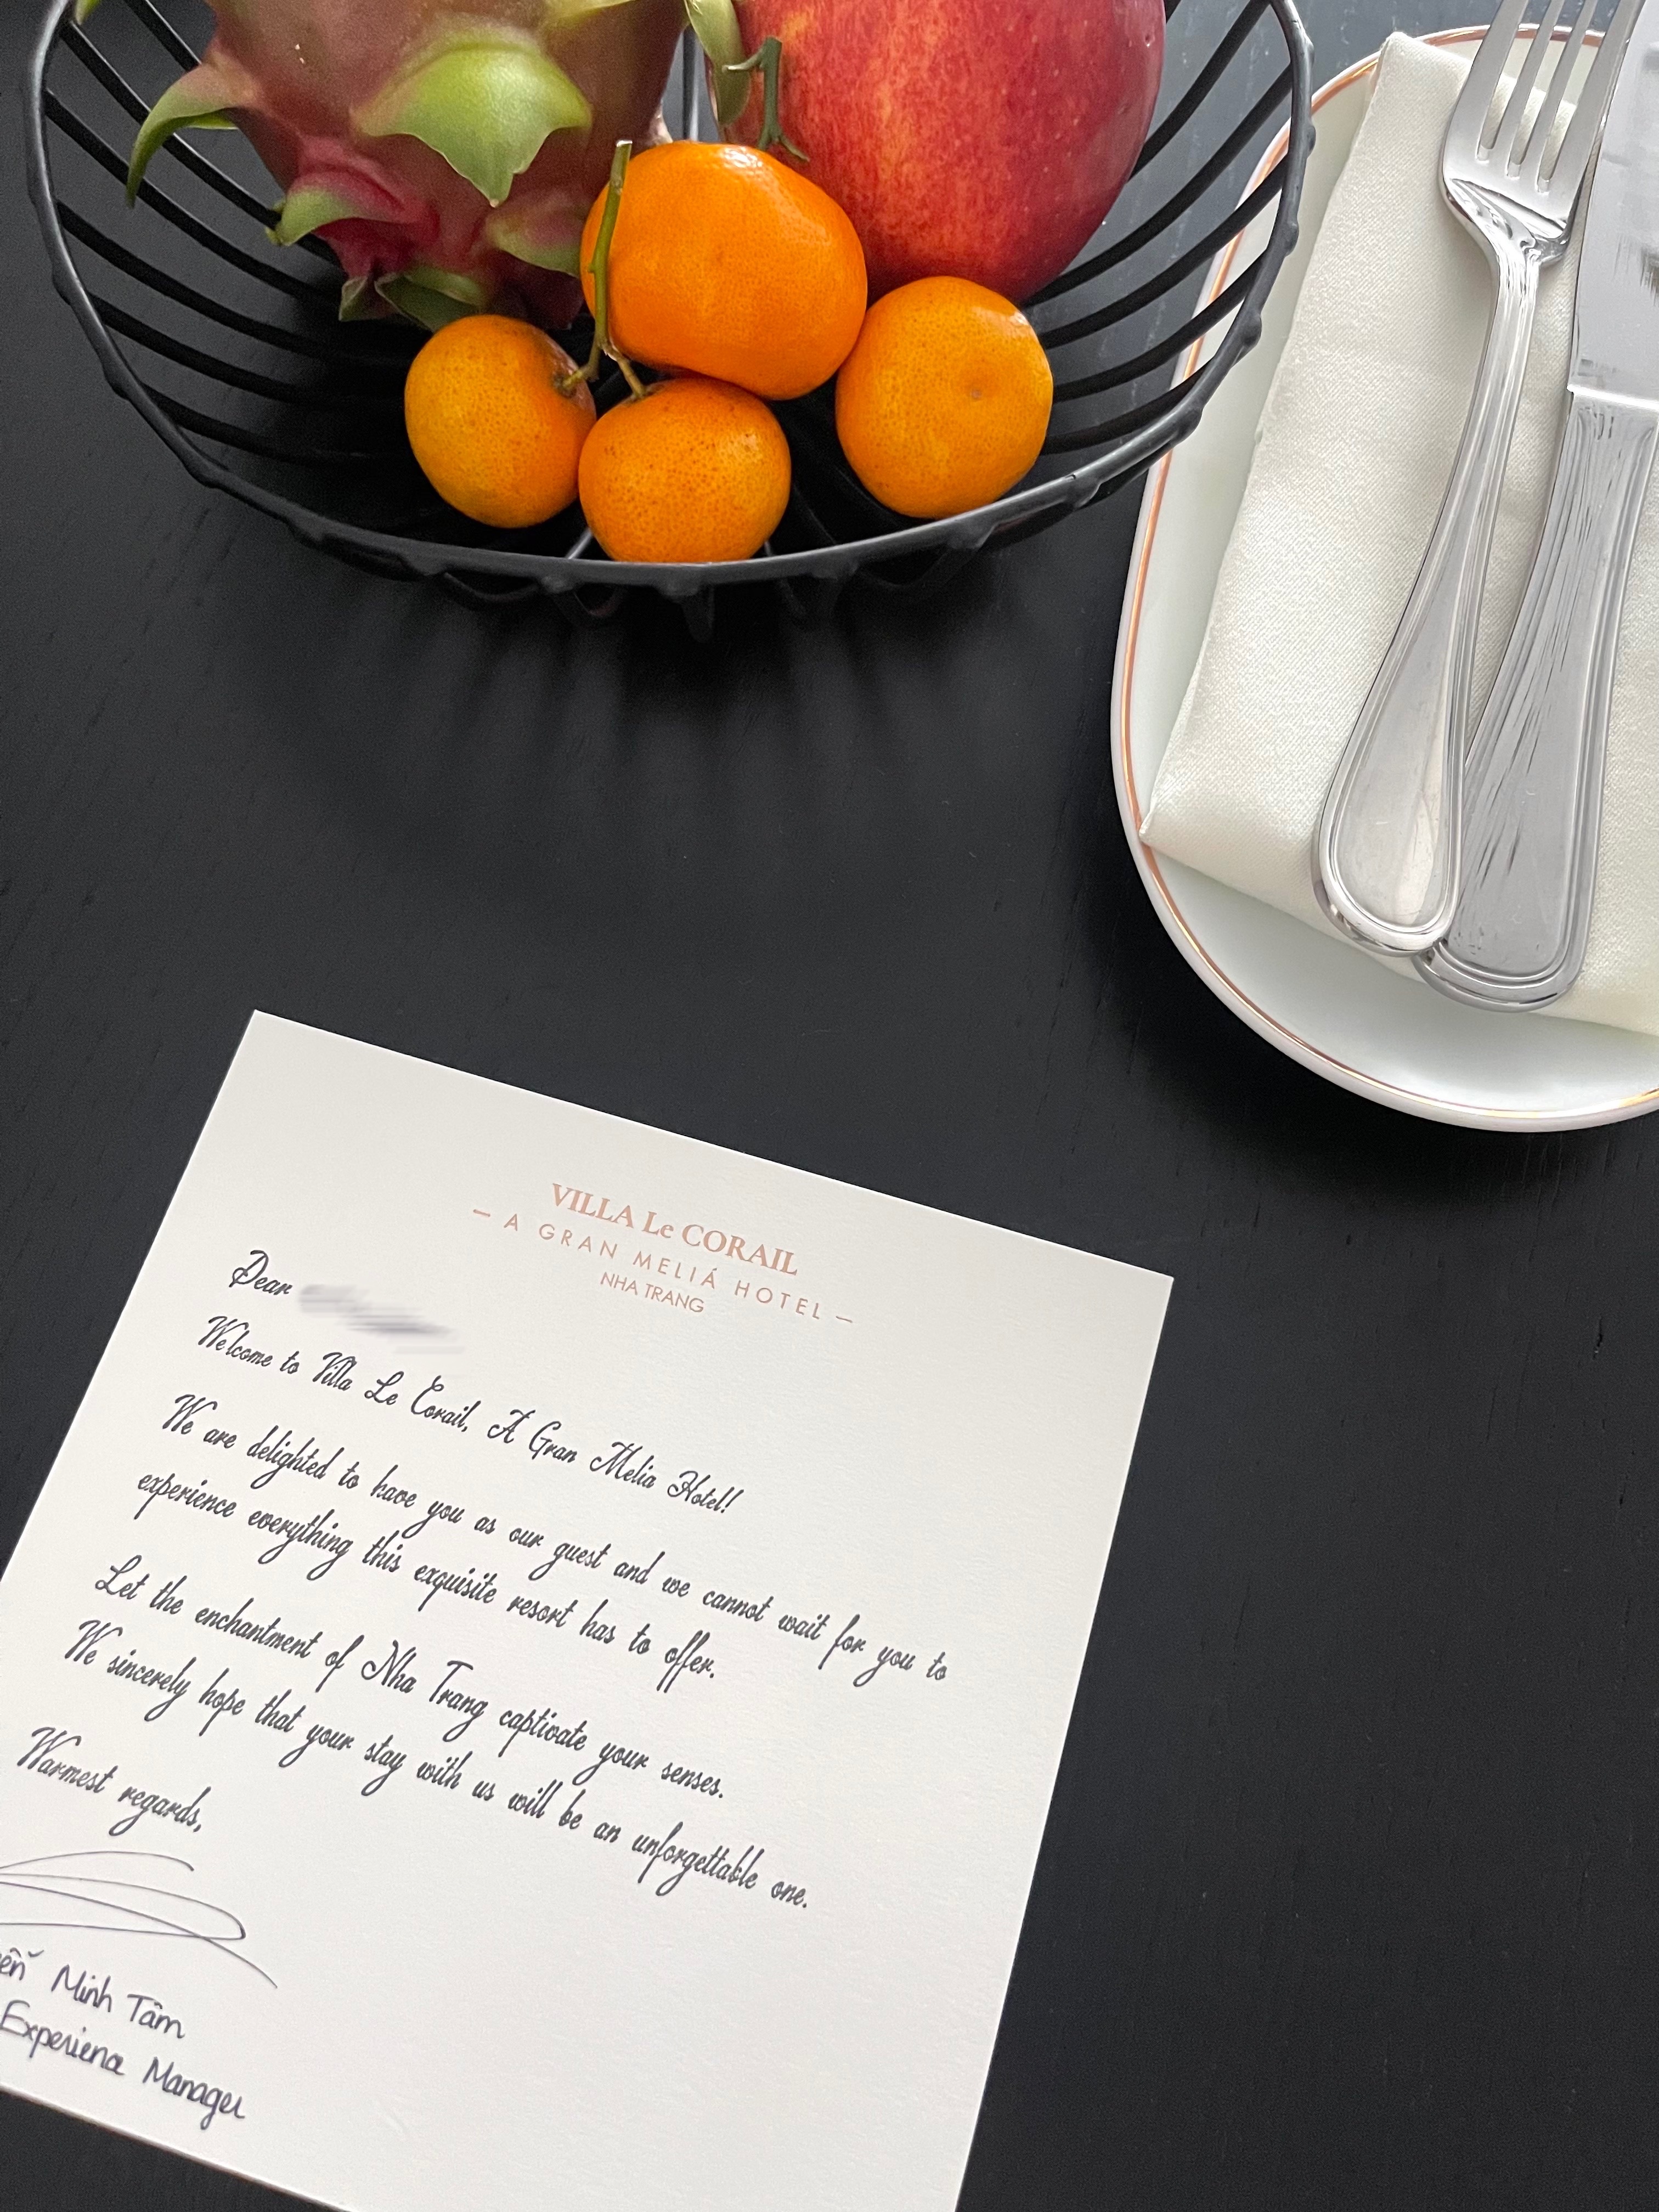 VILLA Le CORAIL
— A GRAN MELIÁ HOTEL —
NHA TRANG
Dear
Welcome to Villa Le Corail, A Gran Melia Hotel!
We are delighted to have you as our guest and we cannot wait for you to
experience everything this exquisite resort has to offer.
Let the enchantment of Nha Trang captivate your senses.
We sincerely hope that your stay with us will be an unforgettable one.
Warmest regards,
Minh Tâm
Experience Manager